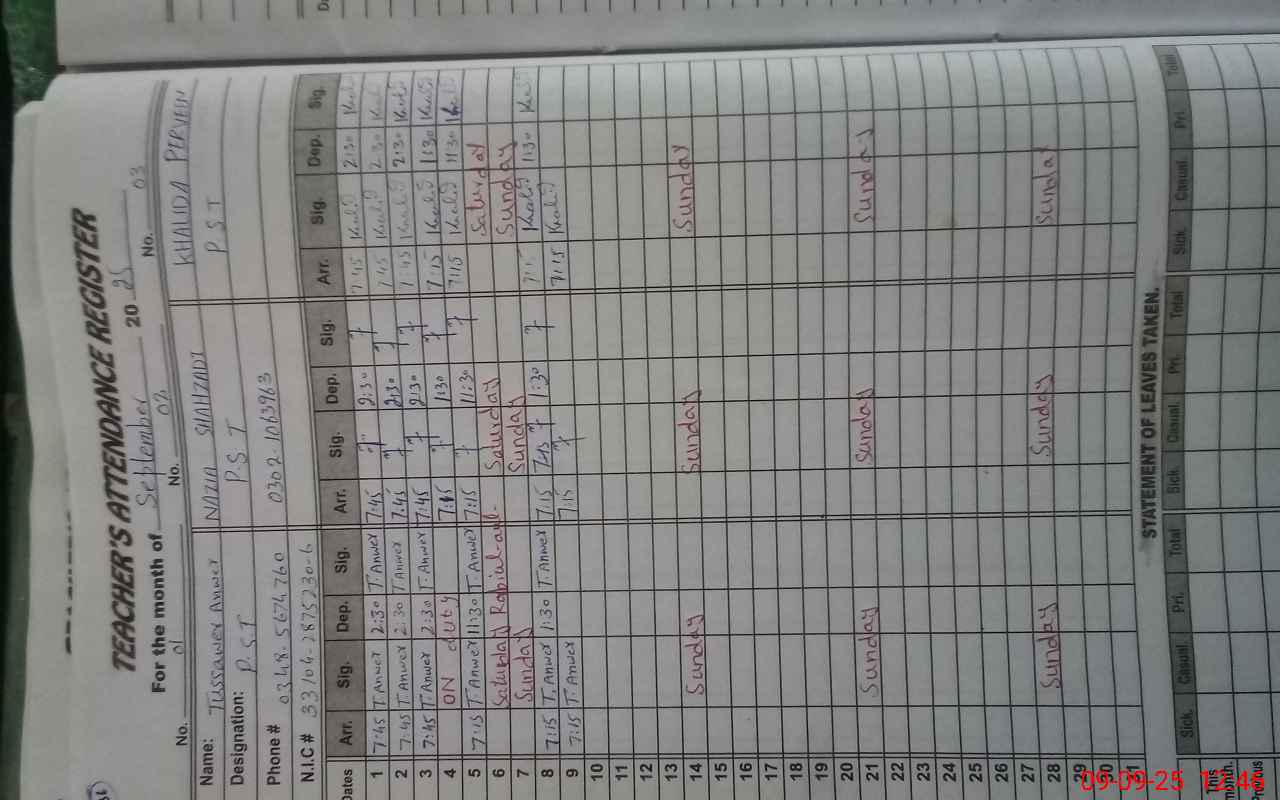 TEACHER'S ATTENDANCE REGISTER
For the month of September 20 25
No. 01 No. 02 No. 03
Name: Tussawer Anwer NAZIA SHAHZADI KHALIDA PERVEEN
Designation: P.S.T P.S T P S T
Phone # 0348-5674760 0302-1063963
N.I.C # 33104-2875230-6
Dates Arr. Sig. Dep. Sig. Arr. Sig. Dep. Sig. Arr. Sig. Dep. Sig.
1 7:45 T.Anwer 2:30 T.Anwer 7:45 2:30 7:45 2:30
2 7:45 T.Anwer 2:30 T.Anwer 7:45 2:30 7:45 2:30
3 7:45 T.Anwer 2:30 T.Anwer 7:45 2:30 7:45 2:30
4 ON duty 7:15 1:30 7:15 1:30
5 7:15 T.Anwer 11:30 T.Anwer 7:15 11:30 7:15 11:30
6 Saturday Saturday Saturday
7 Sunday Sunday Sunday
8 7:15 T.Anwer 1:30 T.Anwer 7:15 1:30 7:15 1:30
9 7:15 T.Anwer 7:15 7:15
10
11
12
13
14 Sunday Sunday Sunday
15
16
17
18
19
20
21 Sunday Sunday Sunday
22
23
24
25
26
27
28 Sunday Sunday Sunday
29
30
31
STATEMENT OF LEAVES TAKEN.
Sick. Casual. Pri. Total Sick. Casual. Pri. Total Sick. Casual. Pri. Total
This month.
09-09-25 12:46